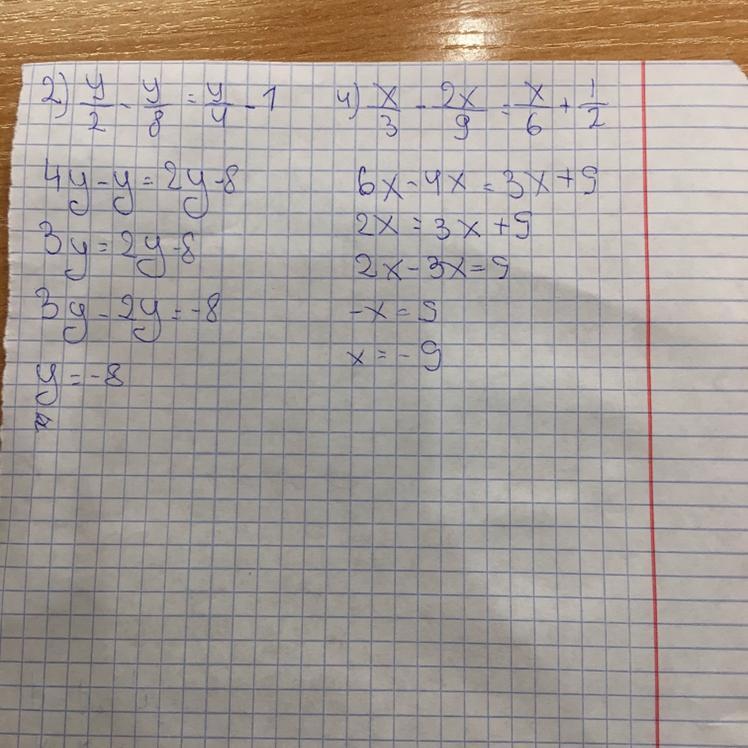 2) y/2 - y/8 = y/4 - 1
4y - y = 2y - 8
3y = 2y - 8
3y - 2y = -8
y = -8
4) x/3 - 2x/9 = x/6 + 1/2
6x - 4x = 3x + 9
2x = 3x + 9
2x - 3x = 9
-x = 9
x = -9